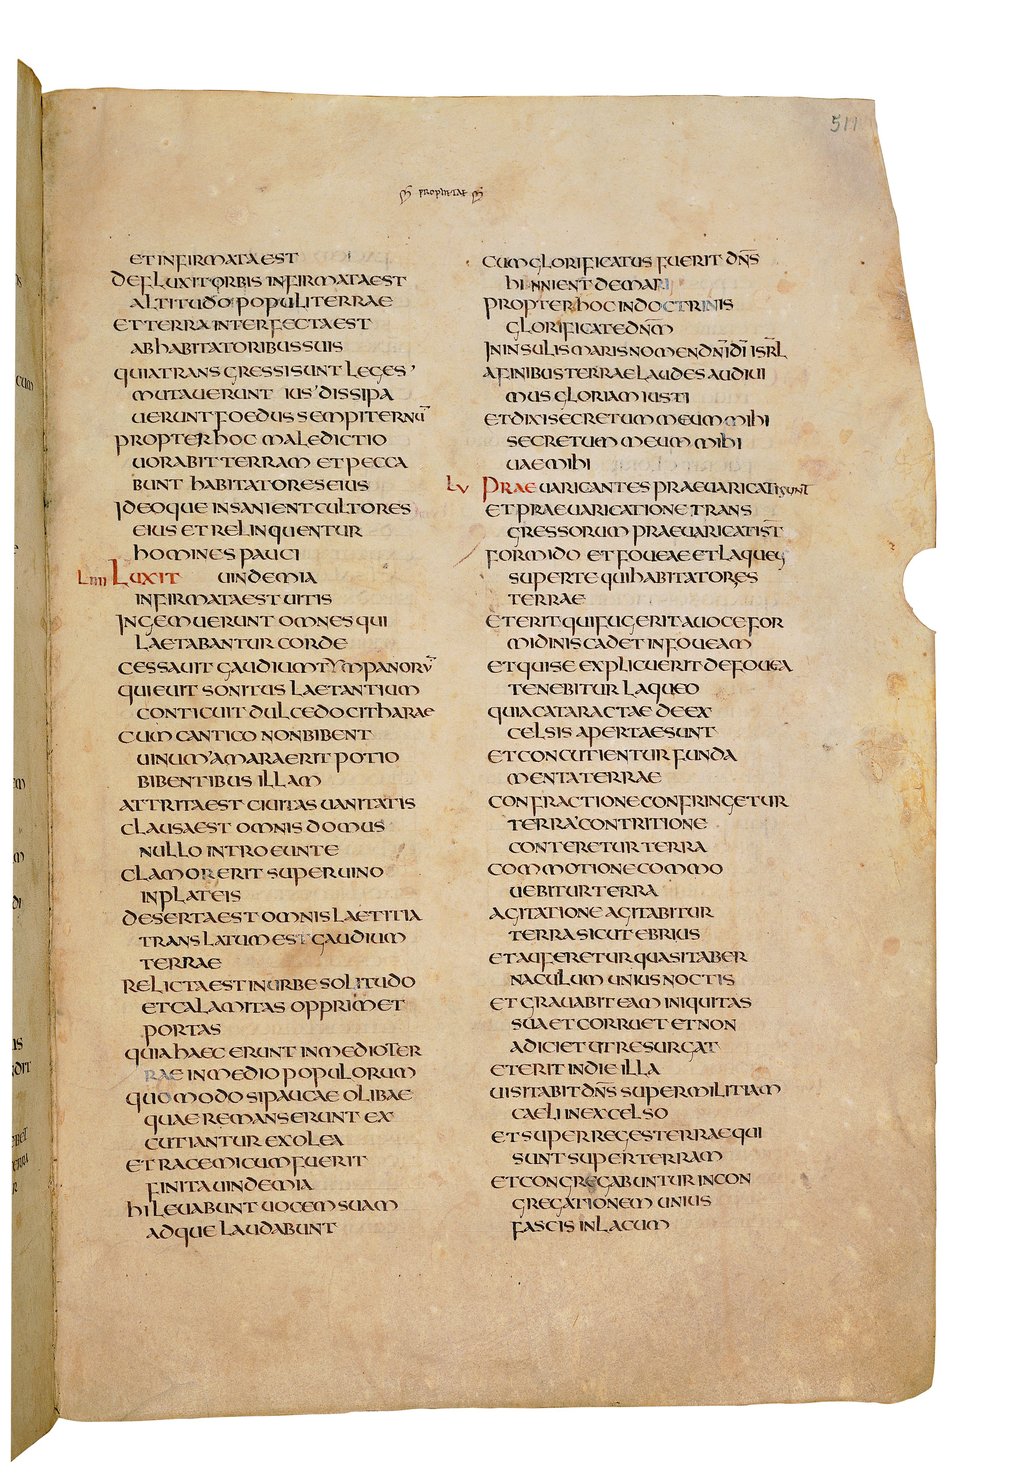 511
PROPHETAE
ET INFIRMATA EST
DEFLUXIT ORBIS INFIRMATA EST
ALTITUDO POPULI TERRAE
ET TERRA INTERFECTA EST
AB HABITATORIBUS SUIS
QUIA TRANSGRESSI SUNT LEGES
MUTAUERUNT IUS DISSIPA
UERUNT FOEDUS SEMPITERNŪ
PROPTER HOC MALEDICTIO
UORABIT TERRAM ET PECCA
BUNT HABITATORES EIUS
IDEOQUE INSANIENT CULTORES
EIUS ET RELINQUENTUR
HOMINES PAUCI
LIIII LUXIT UINDEMIA
INFIRMATA EST UITIS
INGEMUERUNT OMNES QUI
LAETABANTUR CORDE
CESSAUIT GAUDIUM TYMPANORŪ
QUIEUIT SONITUS LAETANTIUM
CONTICUIT DULCEDO CITHARAE
CUM CANTICO NON BIBENT
UINUM AMARA ERIT POTIO
BIBENTIBUS ILLAM
ATTRITA EST CIUITAS UANITATIS
CLAUSA EST OMNIS DOMUS
NULLO INTROEUNTE
CLAMOR ERIT SUPER UINO
IN PLATEIS
DESERTA EST OMNIS LAETITIA
TRANSLATUM EST GAUDIUM
TERRAE
RELICTA EST IN URBE SOLITUDO
ET CALAMITAS OPPRIMET
PORTAS
QUIA HAEC ERUNT IN MEDIO TER
RAE IN MEDIO POPULORUM
QUOMODO SI PAUCAE OLIBAE
QUAE REMANSERUNT EX
CUTIANTUR EX OLEA
ET RACEMI CUM FUERIT
FINITA UINDEMIA
HI LEUABUNT UOCEM SUAM
ADQUE LAUDABUNT
CUM GLORIFICATUS FUERIT DN̄S
HINNIENT DE MARI
PROPTER HOC IN DOCTRINIS
GLORIFICATE DN̄M
IN INSULIS MARIS NOMEN DN̄I DĪ ISRL̄
A FINIBUS TERRAE LAUDES AUDIUI
MUS GLORIAM IUSTI
ET DIXI SECRETUM MEUM MIHI
SECRETUM MEUM MIHI
UAE MIHI
LV PRAEUARICANTES PRAEUARICATI SUNT
ET PRAEUARICATIONE TRANS
GRESSORUM PRAEUARICATI ST̄
FORMIDO ET FOUEAE ET LAQUEI
SUPER TE QUI HABITATORES
TERRAE
ET ERIT QUI FUGERIT A UOCE FOR
MIDINIS CADET IN FOUEAM
ET QUI SE EXPLICUERIT DE FOUEA
TENEBITUR LAQUEO
QUIA CATARACTAE DE EX
CELSIS APERTAE SUNT
ET CONCUTIENTUR FUNDA
MENTA TERRAE
CONFRACTIONE CONFRINGETUR
TERRA CONTRITIONE
CONTERETUR TERRA
COMMOTIONE COMMO
UEBITUR TERRA
AGITATIONE AGITABITUR
TERRA SICUT EBRIUS
ET AUFERETUR QUASI TABER
NACULUM UNIUS NOCTIS
ET GRAUABIT EAM INIQUITAS
SUA ET CORRUET ET NON
ADICIET UT RESURGAT
ET ERIT IN DIE ILLA
UISITABIT DN̄S SUPER MILITIAM
CAELI IN EXCELSO
ET SUPER REGES TERRAE QUI
SUNT SUPER TERRAM
ET CONGREGABUNTUR IN CON
GREGATIONEM UNIUS
FASCIS IN LACUM